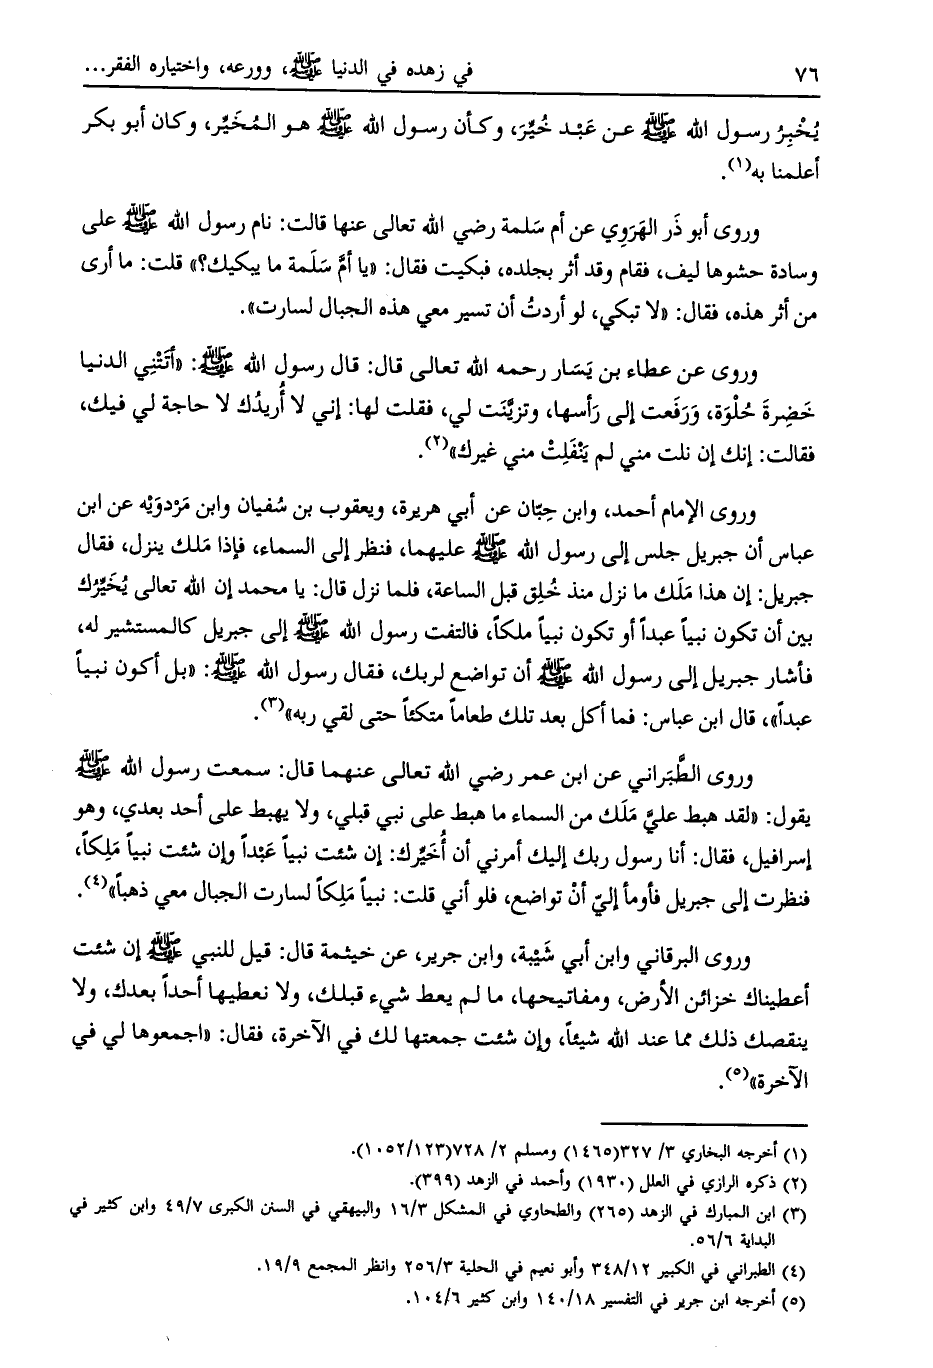 ٧٦ في زهده في الدنيا ﷺ، وورعه، واختياره الفقر...
يُخْبِرُ رسول الله ﷺ عن عَبْد خُيِّرَ، وكأن رسول الله ﷺ هو المُخَيَّر، وكان أبو بكر
أعلمنا به(١).
وروى أبو ذَر الهَرَوِي عن أم سَلمة رضي الله تعالى عنها قالت: نام رسول الله ﷺ على
وسادة حشوها ليف، فقام وقد أثر بجلده، فبكيت فقال: «يا أمَّ سَلَمة ما يبكيك؟» قلت: ما أرى
من أثر هذه، فقال: «لا تبكي، لو أردتُ أن تسير معي هذه الجبال لسارت».
وروى عن عطاء بن يَسَار رحمه الله تعالى قال: قال رسول الله ﷺ: «أَتَتْنِي الدنيا
خَضِرةَ حُلْوَة، وَرَفَعت إلى رَأسها، وتزيَّنَت لي، فقلت لها: إني لا أُريدُك لا حاجة لي فيك،
فقالت: إنك إن نلت مني لم يَنْفَلِتْ مني غيرك»(٢).
وروى الإمام أحمد، وابن حِبّان عن أبي هريرة، ويعقوب بن سُفيان وابن مَرْدوَيْه عن ابن
عباس أن جبريل جلس إلى رسول الله ﷺ عليهما، فنظر إلى السماء، فإذا مَلك ينزل، فقال
جبريل: إن هذا مَلَك ما نزل منذ خُلِق قبل الساعة، فلما نزل قال: يا محمد إن الله تعالى يُخَيِّرُك
بين أن تكون نبياً عبداً أو تكون نبياً ملكاً، فالتفت رسول الله ﷺ إلى جبريل كالمستشير له،
فأشار جبريل إلى رسول الله ﷺ أن تواضع لربك، فقال رسول الله ﷺ: «بل أكون نبياً
عبداً»، قال ابن عباس: فما أكل بعد تلك طعاماً متكئاً حتى لقي ربه»(٣).
وروى الطَّبَراني عن ابن عمر رضي الله تعالى عنهما قال: سمعت رسول الله ﷺ
يقول: «لقد هبط عليّ مَلَك من السماء ما هبط على نبي قبلي، ولا يهبط على أحد بعدي، وهو
إسرافيل، فقال: أنا رسول ربك إليك أمرني أن أُخَيِّرك: إن شئت نبياً عَبْداً وإن شئت نبياً مَلِكاً،
فنظرت إلى جبريل فأومأ إليّ أنْ تواضع، فلو أني قلت: نبياً مَلِكاً لسارت الجبال معي ذهباً»(٤).
وروى البرقاني وابن أبي شَيْبة، وابن جرير، عن خيثمة قال: قيل للنبي ﷺ إن شئت
أعطيناك خزائن الأرض، ومفاتيحها، ما لم يعط شيء قبلك، ولا نعطيها أحداً بعدك، ولا
ينقصك ذلك مما عند الله شيئاً، وإن شئت جمعتها لك في الآخرة، فقال: «اجمعوها لي في
الآخرة»(٥).
(١) أخرجه البخاري ٣/ ٣٢٧(١٤٦٥) ومسلم ٢/ ٧٢٨(١٠٥٢/١٢٣).
(٢) ذكره الرازي في العلل (١٩٣٠) وأحمد في الزهد (٣٩٩).
(٣) ابن المبارك في الزهد (٢٦٥) والطحاوي في المشكل ١٦/٣ والبيهقي في السنن الكبرى ٤٩/٧ وابن كثير في
البداية ٥٦/٦.
(٤) الطبراني في الكبير ٣٤٨/١٢ وأبو نعيم في الحلية ٢٥٦/٣ وانظر المجمع ١٩/٩.
(٥) أخرجه ابن جرير في التفسير ١٤٠/١٨ وابن كثير ١٠٤/٦.